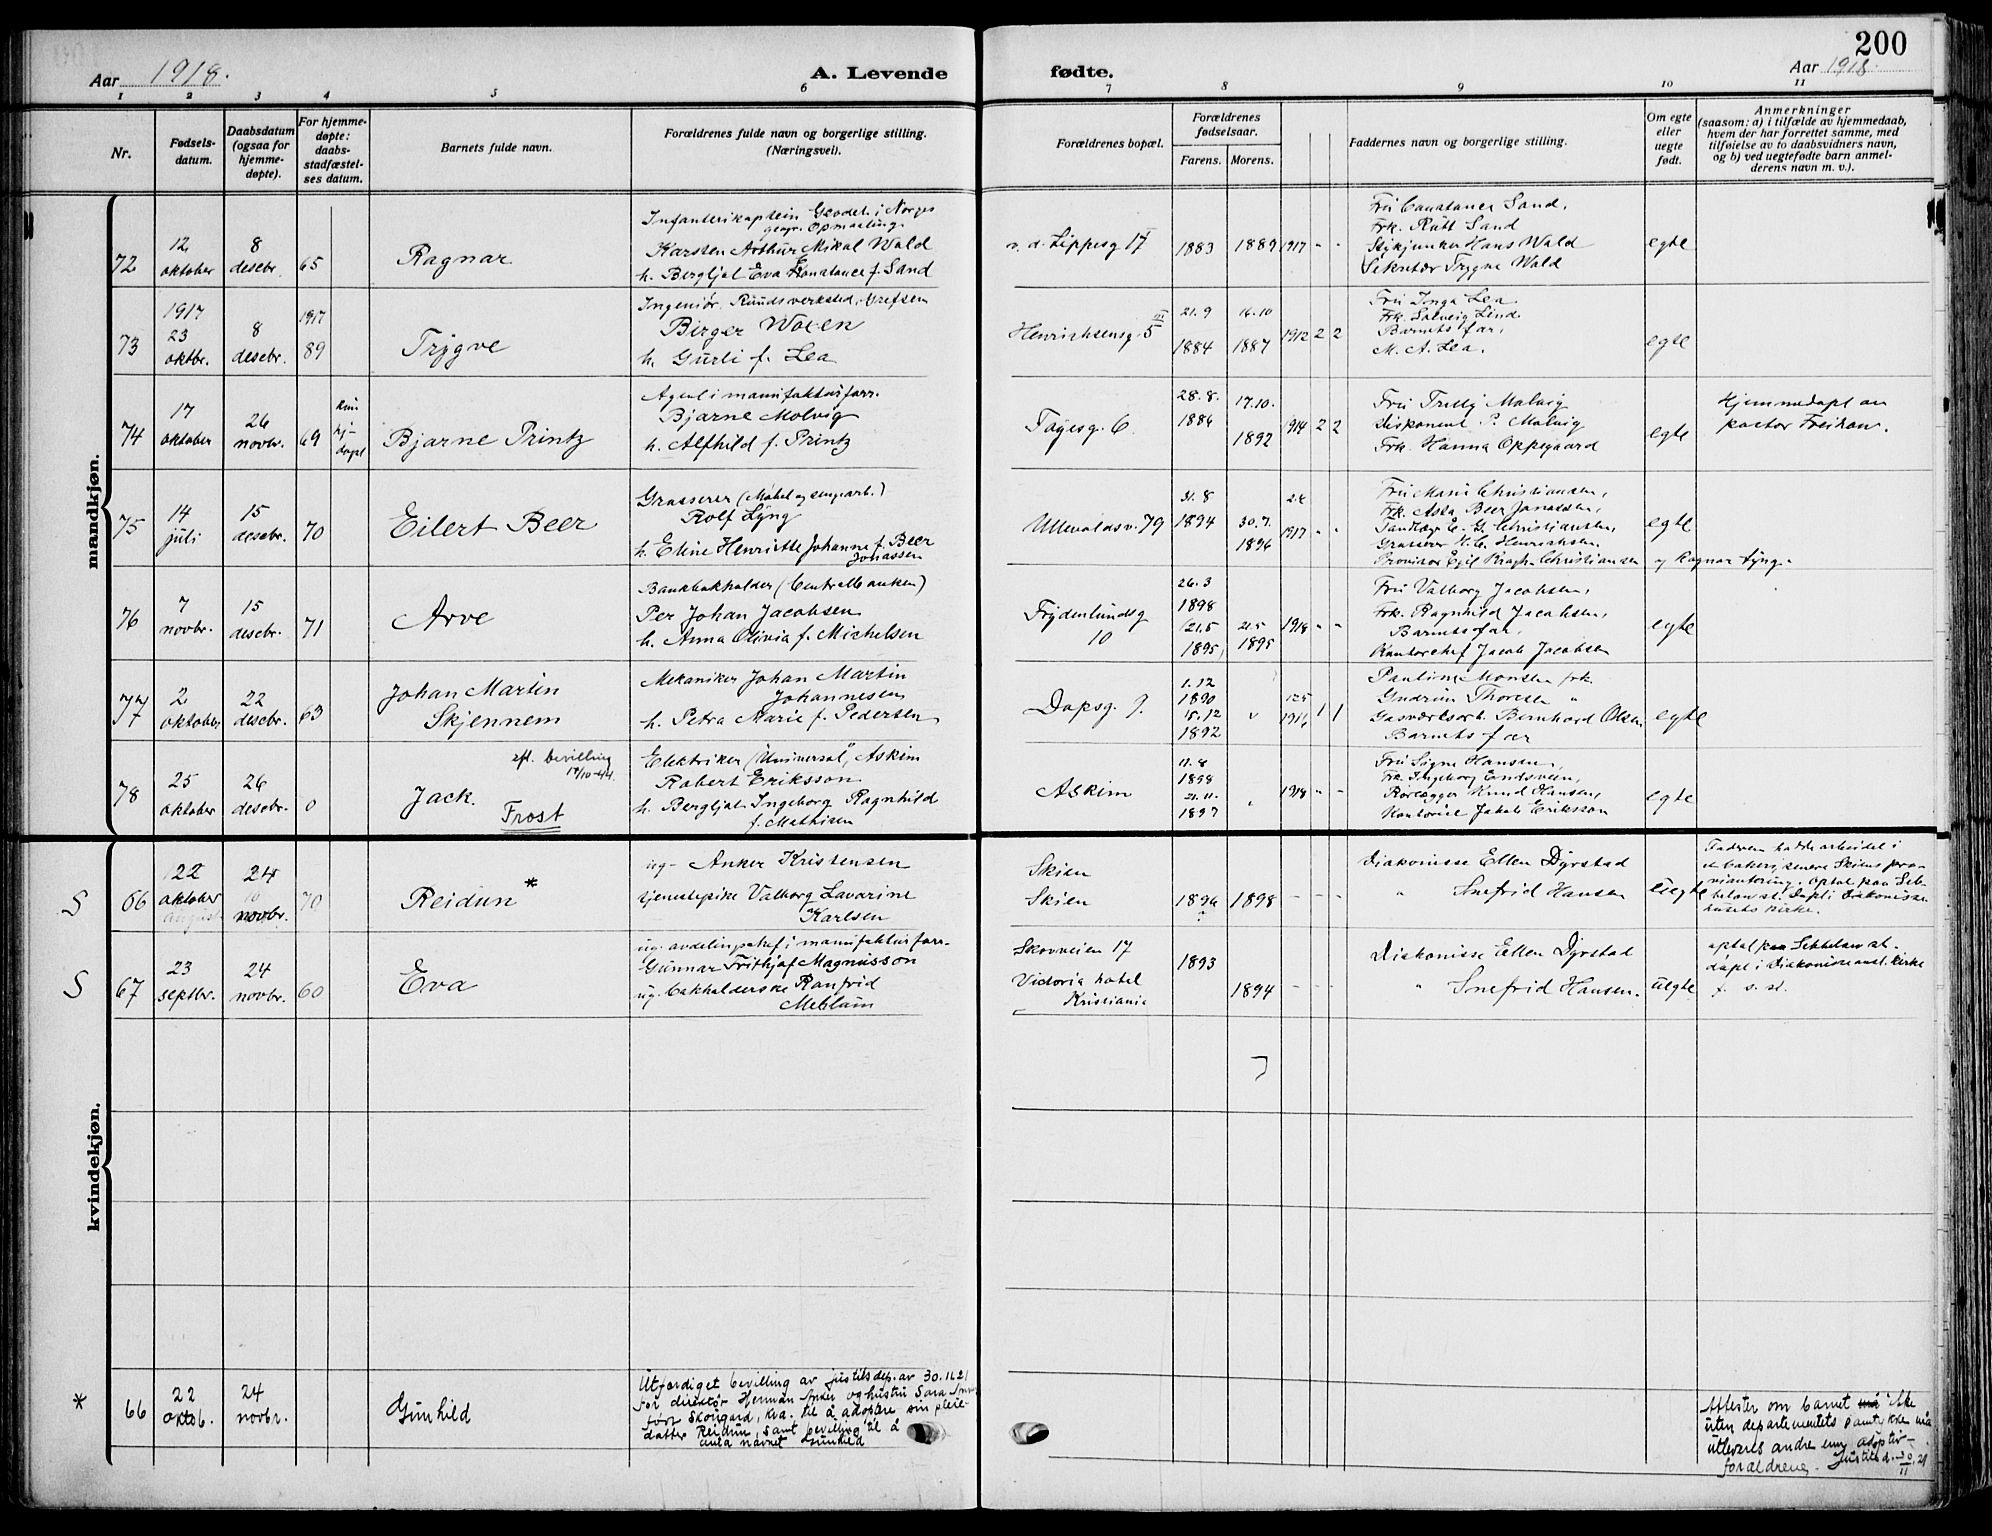 200
Aar 1918.
A. Levende
fødte.
Aar 1918.
1 2 3 4 5 6 7 8 9 10 11
Nr.
Fødsels-
datum.
Daabsdatum
(ogsaa for
hjemme-
døpte).
For hjemme-
døpte:
daabs-
stadfæstel-
ses datum.
Barnets fulde navn.
Forældrenes fulde navn og borgerlige stilling.
(Næringsvei).
Forældrenes bopæl.
Forældrenes
fødselsaar.
Farens. Morens.
Faddernes navn og borgerlige stilling.
Om egte
eller
uegte
født.
Anmerkninger
(saasom: a) i tilfælde av hjemmedaab,
hvem der har forrettet samme, med
tilføielse av to daabsvidners navn,
og b) ved uegtefødte barn anmel-
derens navn m. v.).
mandkjøn.
72
12
oktober
8
desebr.
65
Ragnar
Infanterikaptein Geodet i Norges
geogr. Opmaaling.
Karsten Arthur Mikal Wald
h. Bergljot Eva Konstance f. Sand
v. d. Lippesg 17
1883
1889
1917 " "
Fru Constance Sand.
Frk. Rutt Sand
Hans Wald
Sekretær Trygve Wald
egte
73
1917
23
oktbr.
8
desebr.
1917
89
Trygve
Ingeniør. Ruuds verksted, Grefsen
Birger Woxen
h. Gurli f. Lea
Henrichsensg. 5 III
21.9
1884
16.10
1887
1912 2 2
Fru Inga Lea
Frk. Solveig Lind.
Barnets far,
M. A. Lea.
egte
74
17
oktober
26
novbr.
69
hj-
døpt
Bjarne Printz
Agent i manufakturforr.
Bjarne Molvig
h. Alfhild f. Printz
Tøyesg. 6.
28.8.
1886
17.10.
1892
1914 2 2
Fru Molvig
Disponent P. Molvig
Frk. Hanna Oppegaard
egte
Hjemmedøpt av
pastor
75
14
juli
15
desebr.
70
Eilert Beer
Grosserer (Møbel og sengearb.)
Rolf Lyng
h. Eline Henriette Johanne f. Beer
Jonassen
Ullevoldsv. 79
31.8
1894
30.7.
1896
2.6
1917 " "
Fru Marie Christiansen,
Frk. Asta Beer Jonassen,
Tandlæge E. G. Christiansen,
Grosserer H. C. Henrichsen.
Provisor Egil Krogh Christiansen og Ragnar Lyng.
egte
76
7
novbr.
15
desebr.
71
Arve
Bankbokholder (Centralbanken)
Per Johan Jacobsen
h. Anna Olivia f. Michelsen
Frydenlundsg
10
26.3
1898
(21.5
1895)
21.5
1895
1918 " "
Fru Valborg Jacobsen,
Frk. Ragnhild Jacobsen,
Barnets far,
Kontorchef Jacob Jacobsen
egte
77
2
oktober
22
desebr.
63
Johan Martin
Skjennem
Mekaniker Johan Martin
Johannesen
h. Petra Marie f. Pedersen
Dopsg. 9.
1.12
1890
15.12
1892
"
12.5
1916 1 1
Pauline Monsen frk.
Gudrun Thoresen "
Gasverksarb. Bernhard Olsen
Barnets far
egte
78
25
oktober
26
desebr.
0
Jack.
efl. bevilling
19/10-44.
Frost
Elektriker ("Universal", Askim
Robert Eriksson
h. Bergljot Ingeborg Ragnhild
f. Mathisen
Askim
11.8
1898
21.11.
1897
"
1918 " "
Fru Signe Hansen,
Frk. Ingeborg Endsveen,
Rørlægger Knud Hansen,
Kontorist Jakob Eriksson
egte
kvindekjøn.
S
66
22
oktober
august
24
10
novbr.
70
Reidun *
ug. Anker Kristensen
tjenestepike Valborg Lavarine
Karlsen
Skien
Skien
1896
?
1898
- - -
Diakonisse Ellen Dyrstad
" Snefrid Hansen
uegte
Faderen hadde arbeidet i
et bakeri, senere Skiens prov-
viantering. Optat paa Seb-
belows st. Døpt i Diakonisse-
husets kirke.
S
67
23
septbr.
24
novbr.
60
Eva
ug. avdelingschef i manufakturforr.
Gunnar Frithjof Magnusson
ug. bokholderske Ranfrid
Mehlum
Skovveien 17
Victoria hotel
Kristiania
1893
1894
- - -
Diakonisse Ellen Dyrstad
" Snefrid Hansen.
uegte
optat paa Sebbelows st.
døpt i Diakonisseanst. kirke
f. s. st.
*
66
22
oktob.
24
novbr.
Gunhild
Utferdiget bevilling av justitsdep. av 30.11.21
for direktør Herman Anker og hustru Sara Anker
født Skougard, Kra. til å adoptere sin pleie-
datter Reidun, samt bevilling til å
anta navnet Gunhild
Attester om barnet må ikke
uten departementets samtykke må
utleveres andre enn adoptiv-
foreldrene. Justitsd. 30/11.21